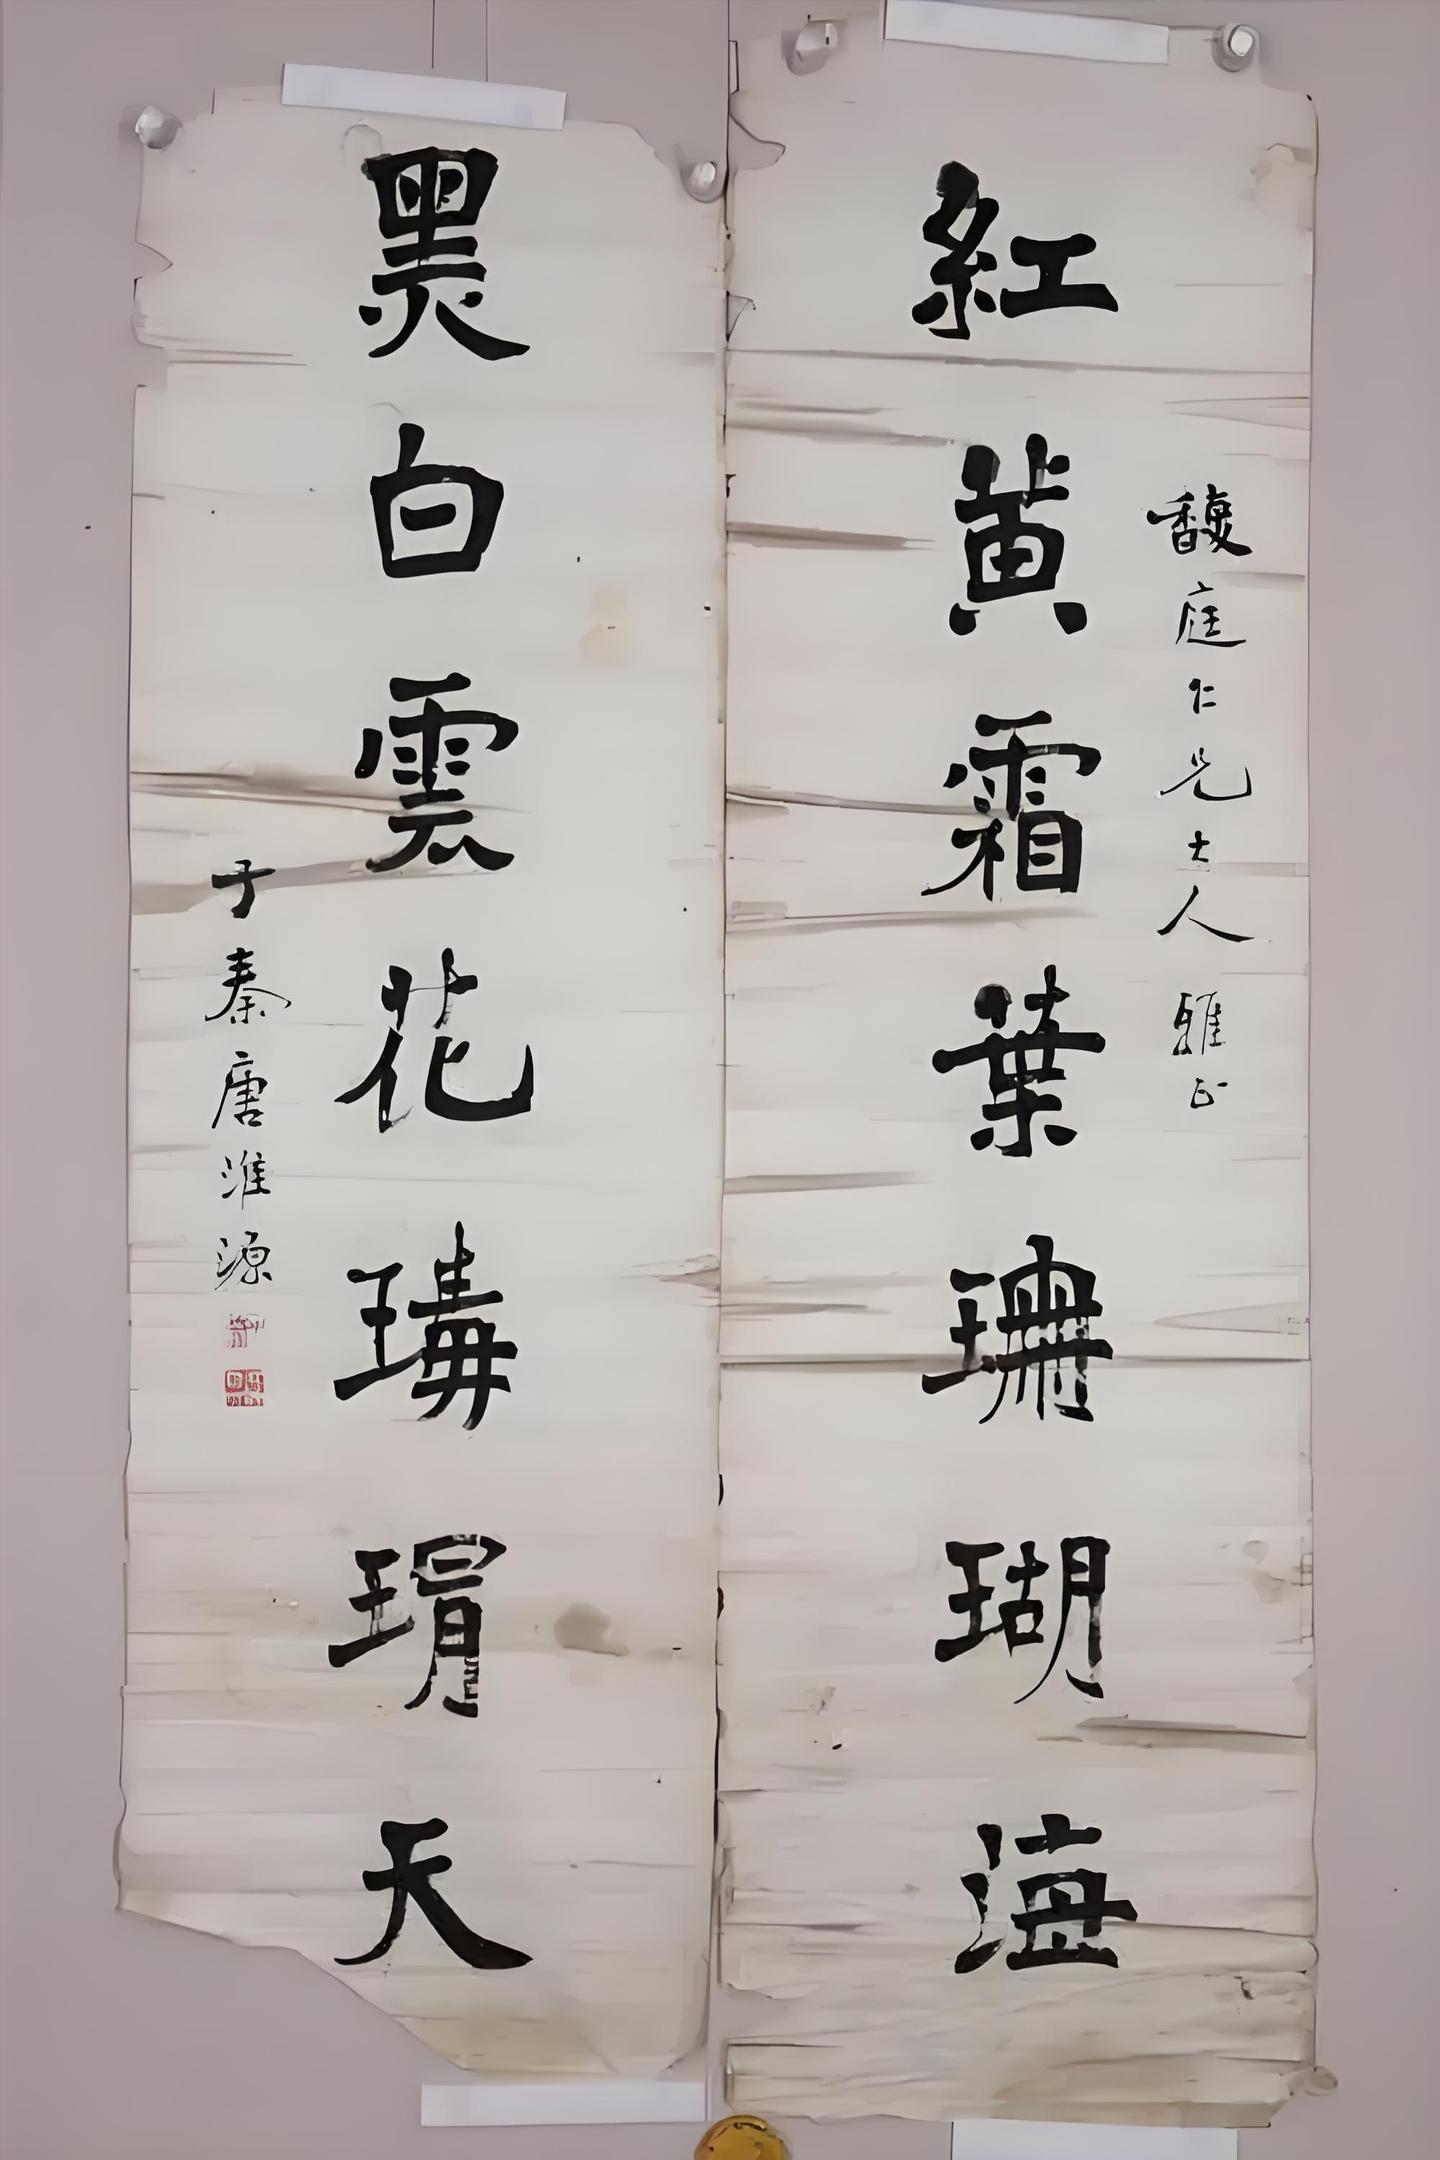 紅黃霜葉珊瑚海
馥庭仁兄大人雅正
黑白雲花瑇瑁天
子秦唐淮源